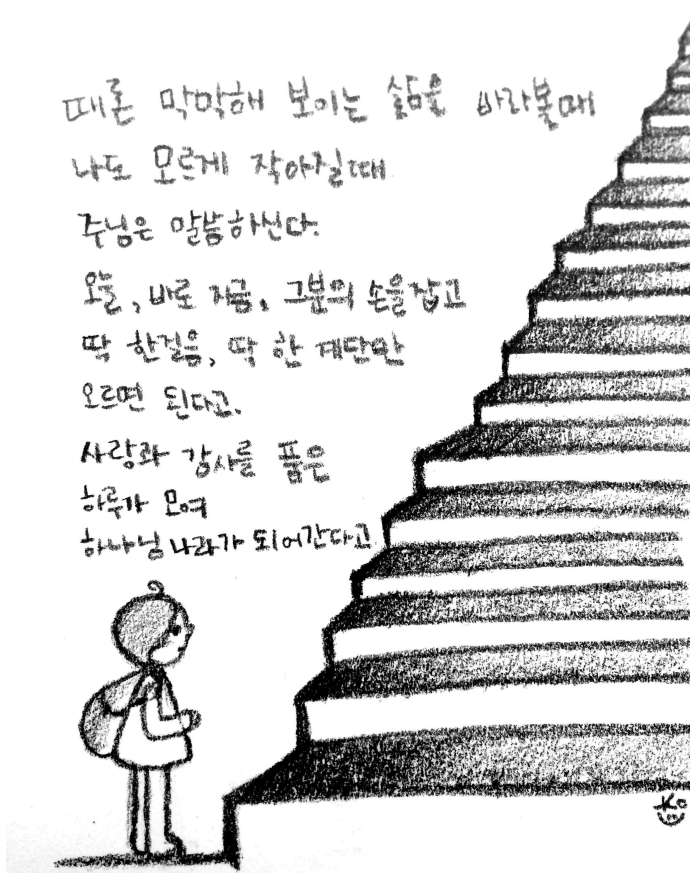 때론 막막해 보이는 삶을 바라볼때
나도 모르게 작아질때
주님은 말씀하신다.
오늘, 바로 지금, 그분의 손을 잡고
딱 한걸음, 딱 한 계단만
오르면 된다고.
사랑과 감사를 품은
하루가 모여
하나님 나라가 되어간다고
Ko